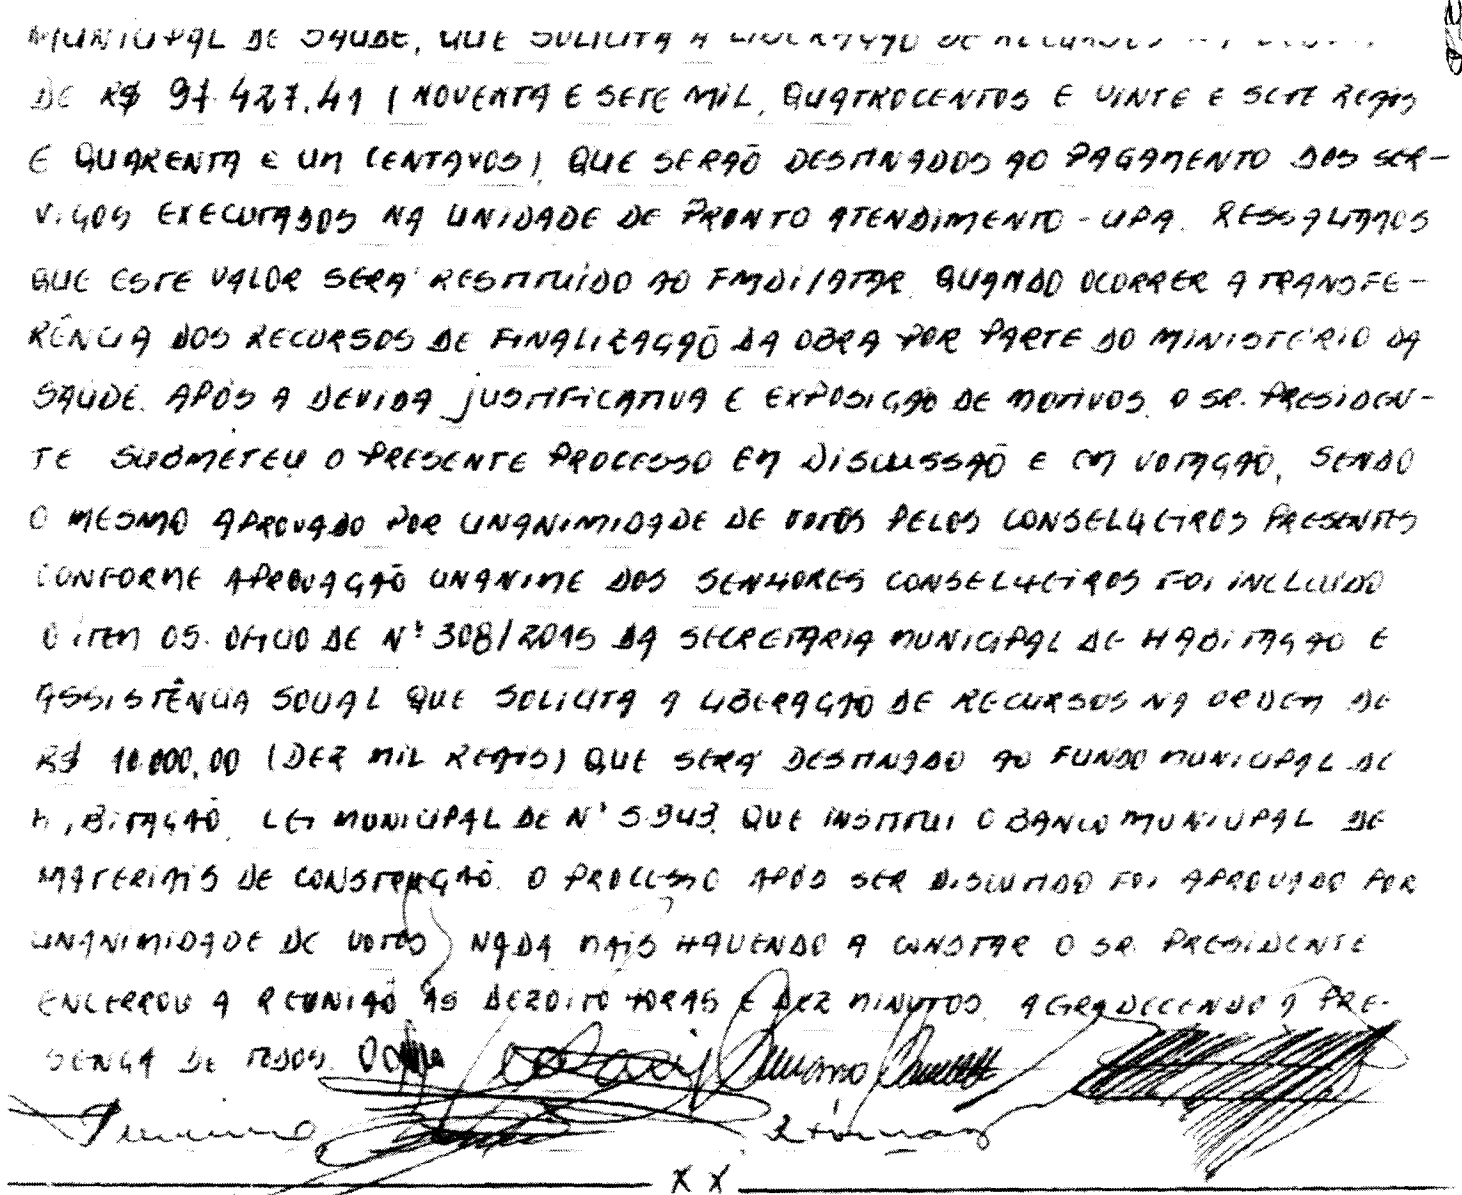 MUNICIPAL DE SAÚDE, QUE SOLICITA A LIBERAÇÃO DE RECURSOS NA
DE R$ 97.427,41 (NOVENTA E SETE MIL, QUATROCENTOS E VINTE E SETE REAIS
E QUARENTA E UM CENTAVOS), QUE SERÃO DESTINADOS AO PAGAMENTO DOS SER-
VIÇOS EXECUTADOS NA UNIDADE DE PRONTO ATENDIMENTO - UPA. RESSALTAMOS
QUE ESTE VALOR SERÁ RESTITUÍDO AO FMDI/ATAR, QUANDO OCORRER A TRANSFE-
RÊNCIA DOS RECURSOS DE FINALIZAÇÃO DA OBRA POR PARTE DO MINISTÉRIO DA
SAÚDE. APÓS A DEVIDA JUSTIFICATIVA E EXPOSIÇÃO DE MOTIVOS, O SR. PRESIDEN-
TE SUBMETEU O PRESENTE PROCESSO EM DISCUSSÃO E EM VOTAÇÃO, SENDO
O MESMO APROVADO POR UNANIMIDADE DE VOTOS PELOS CONSELHEIROS PRESENTES
CONFORME APROVAÇÃO UNANIME DOS SENHORES CONSELHEIROS FOI INCLUIDO
O ITEM 05. OFICIO DE Nº 308/2015 DA SECRETARIA MUNICIPAL DE HABITAÇÃO E
ASSISTÊNCIA SOCIAL QUE SOLICITA A LIBERAÇÃO DE RECURSOS NA ORDEM DE
R$ 10.000,00 (DEZ MIL REAIS) QUE SERÁ DESTINADO AO FUNDO MUNICIPAL DE
HABITAÇÃO, LEI MUNICIPAL DE Nº 5.943, QUE INSTITUI O BANCO MUNICIPAL DE
MATERIAIS DE CONSTRUÇÃO. O PROCESSO APÓS SER DISCUTIDO FOI APROVADO POR
UNANIMIDADE DE VOTOS NADA MAIS HAVENDO A CONSTAR O SR. PRESIDENTE
ENCERROU A REUNIÃO ÀS DEZOITO HORAS E DEZ MINUTOS, AGRADECENDO A PRE-
SENÇA DE TODOS.
X X